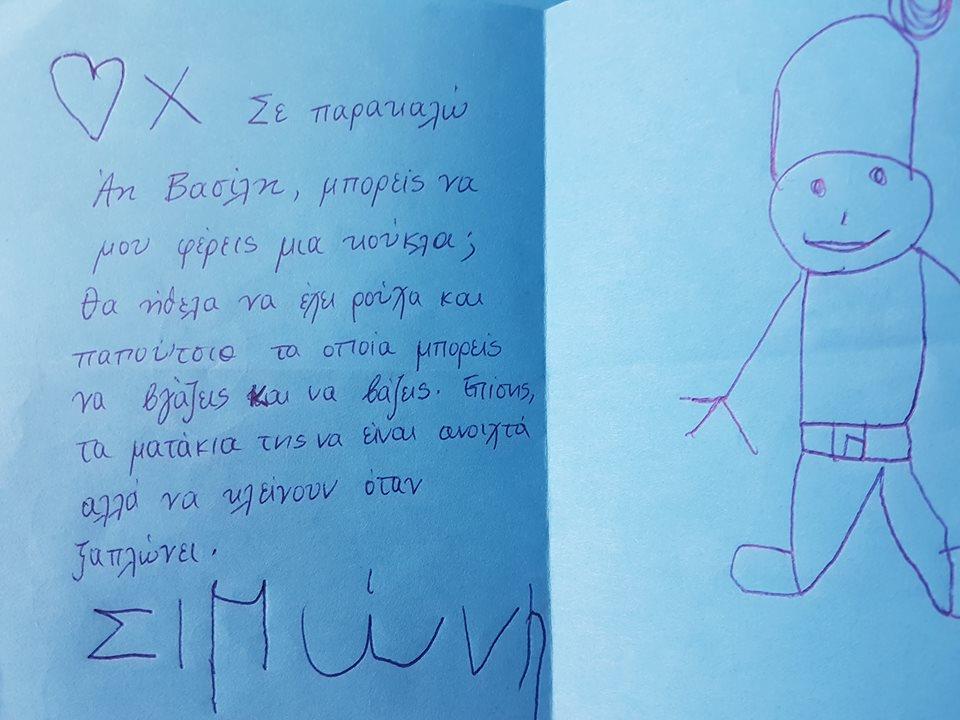 Χ Σε παρακαλώ
Άη Βασίλη, μπορείς να
μου φέρεις μια κούκλα;
Θα ήθελα να έχει ρούχα και
παπούτσια τα οποία μπορείς
να βγάζεις και να βάζεις. Επίσης,
τα ματάκια της να είναι ανοιχτά
αλλά να κλείνουν όταν
ξαπλώνει.
ΣΙΜώνη